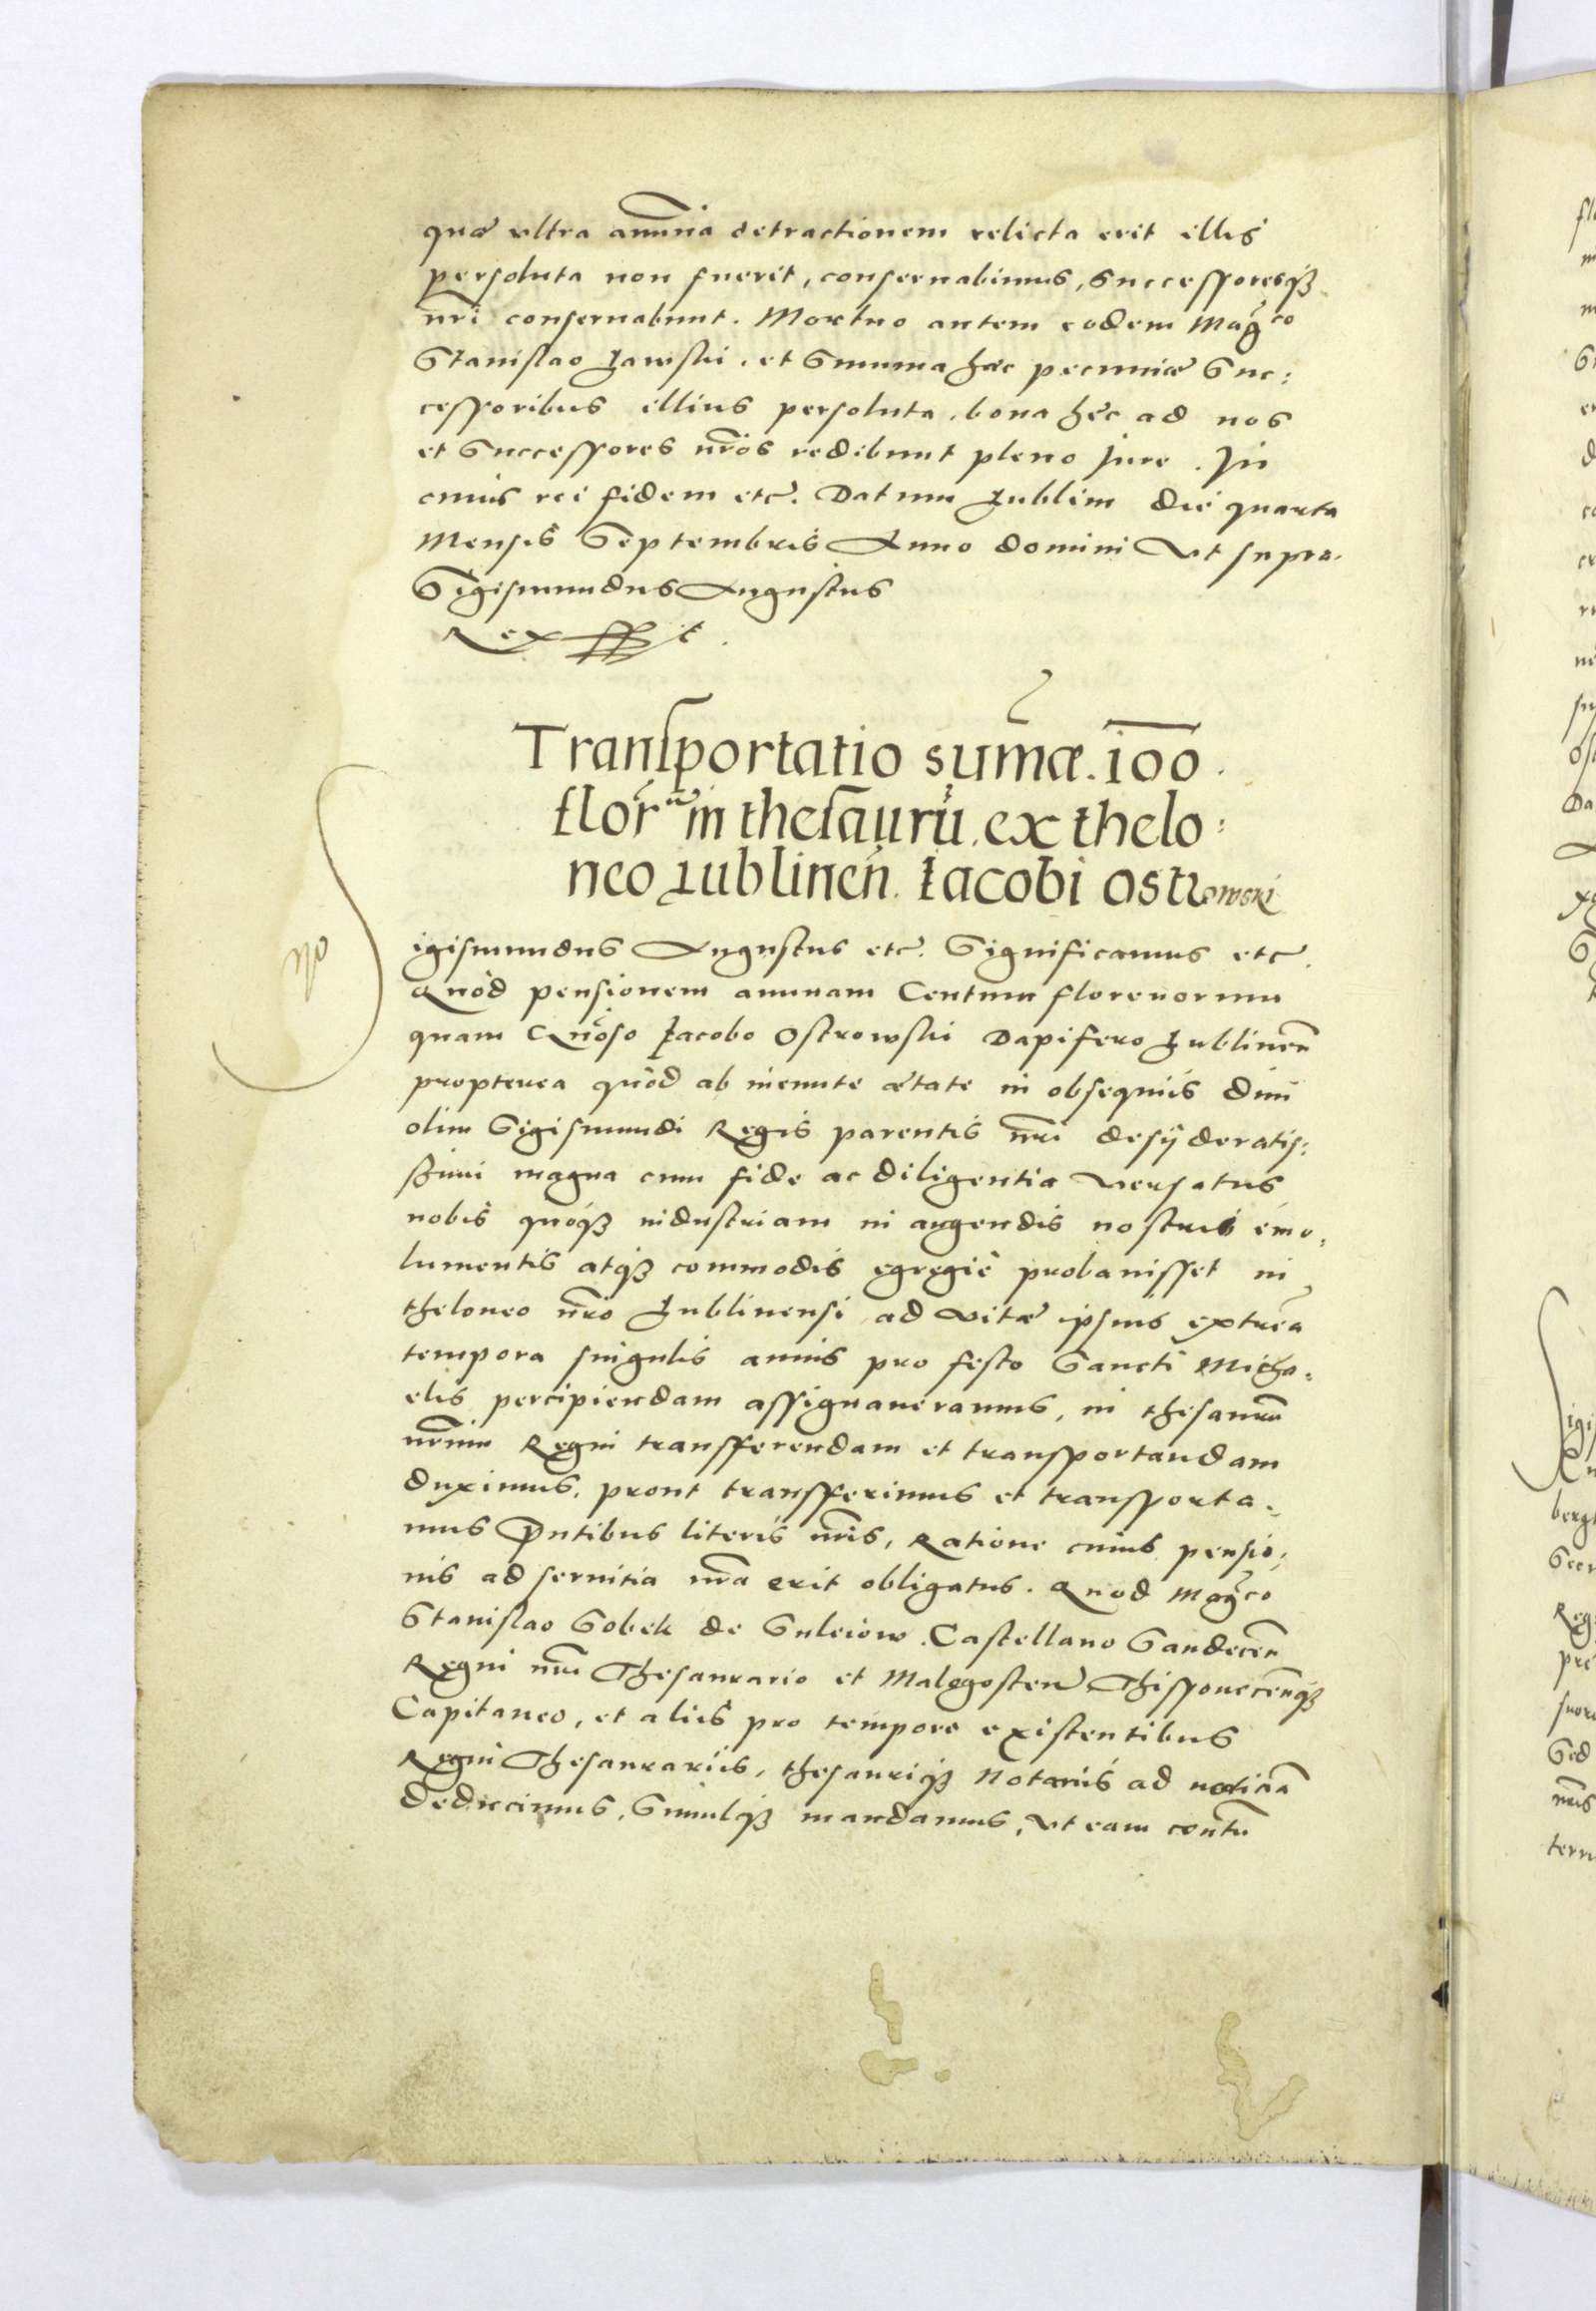 quæ ultra annuã detractionem relicta erit illis
persoluta non fuerit, conservabimus, Successoresq3
nr̃i conservabunt. Mortuo autem eodem Mag͂co
Stanislao Lawski. et Summa hæc pecuniæ Suc:
cessoribus illius persoluta, bona hęc ad nos
et Successores nr̃os redibunt pleno Jure. In
cuius rei fidem etc̃. Datum Lublini die quarta
Mensis Septembris Anno domini Ut supra.
Sigismundus Augustus
Rex sspt.
Transportatio sum̃æ. 100.
flor̃ in thesaurũ. ex thelo:
neo Lublineñ. Iacobi Ostrowski
Sigismundus Augustus etc̃. Significamus etc̃.
Quòd pensionem annuam Centum florenorum
quam Gñoso Jacobo Ostrowski Dapifero Lublineñ
propterea quòd ab ineunte ætate in obsequiis divi
olim Sigismundi Regis parentis nr̃i desyderatis:
simi magna cum fide ac diligentia versatus
nobis quóq3 industriam in augendis nostris emo:
lumentis atq3 commodis egregiè probavisset in
theloneo nr̃o Lublinensi ad vitæ ipsius extrem̃a
tempora singulis annis pro festo Sancti Micha:
elis percipiendam assignaveramus, in thesaurũ
nr̃um Regni transferendam et transportandam
duximus. prout transferimus et transporta:
mus p̃ntibus literis nr̃is, Ratione cuius pensio:
nis ad servitia nr̃a erit obligatus. Quod Mag͂co
Stanislao Sobek de Suleiow. Castellano Sandeceñ
Regni nr̃i Thesaurario et Malogosteñ Thissoueceñq3
Capitaneo, et aliis pro tempore existentibus
Regni Thesaurariis, thesauriq3 Notariis ad noticiã
deducimus, Simulq3 mandamus, ut eam centũ